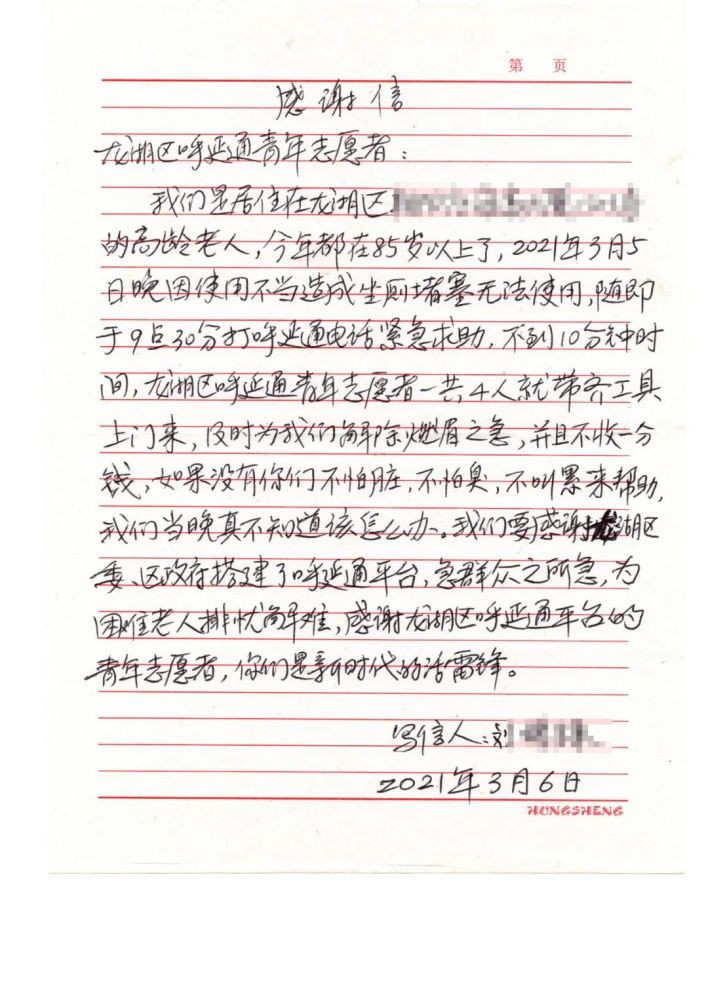 第 页
感谢信
龙湖区呼延通青年志愿者：
我们是居住在龙湖区
的高龄老人，今年都在85岁以上了，2021年3月5
日晚因使用不当造成坐厕堵塞无法使用，随即
于9点30分打呼延通电话紧急求助，不到10分钟时
间，龙湖区呼延通青年志愿者一共4人就带齐工具
上门来，及时为我们解除燃眉之急，并且不收一分
钱，如果没有你们不怕脏，不怕臭，不叫累来帮助，
我们当晚真不知道该怎么办。我们要感谢龙湖区
委、区政府搭建了呼延通平台，急群众之所急，为
困难老人排忧解难，感谢龙湖区呼延通平台的
青年志愿者，你们是新时代的活雷锋。
写信人：刘
2021年3月6日
HONGSHENG